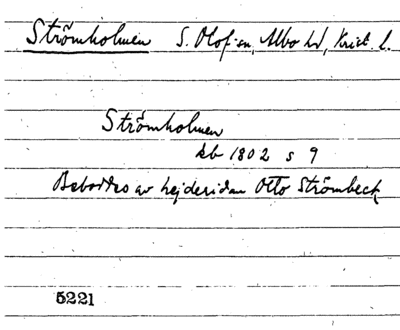 Strömholmen S. Olof sn, Albo hd, Krist. l.
Strömholmen
kb 1802 s 9
Beboddes av hejderidan Otto Strömbeck
5221